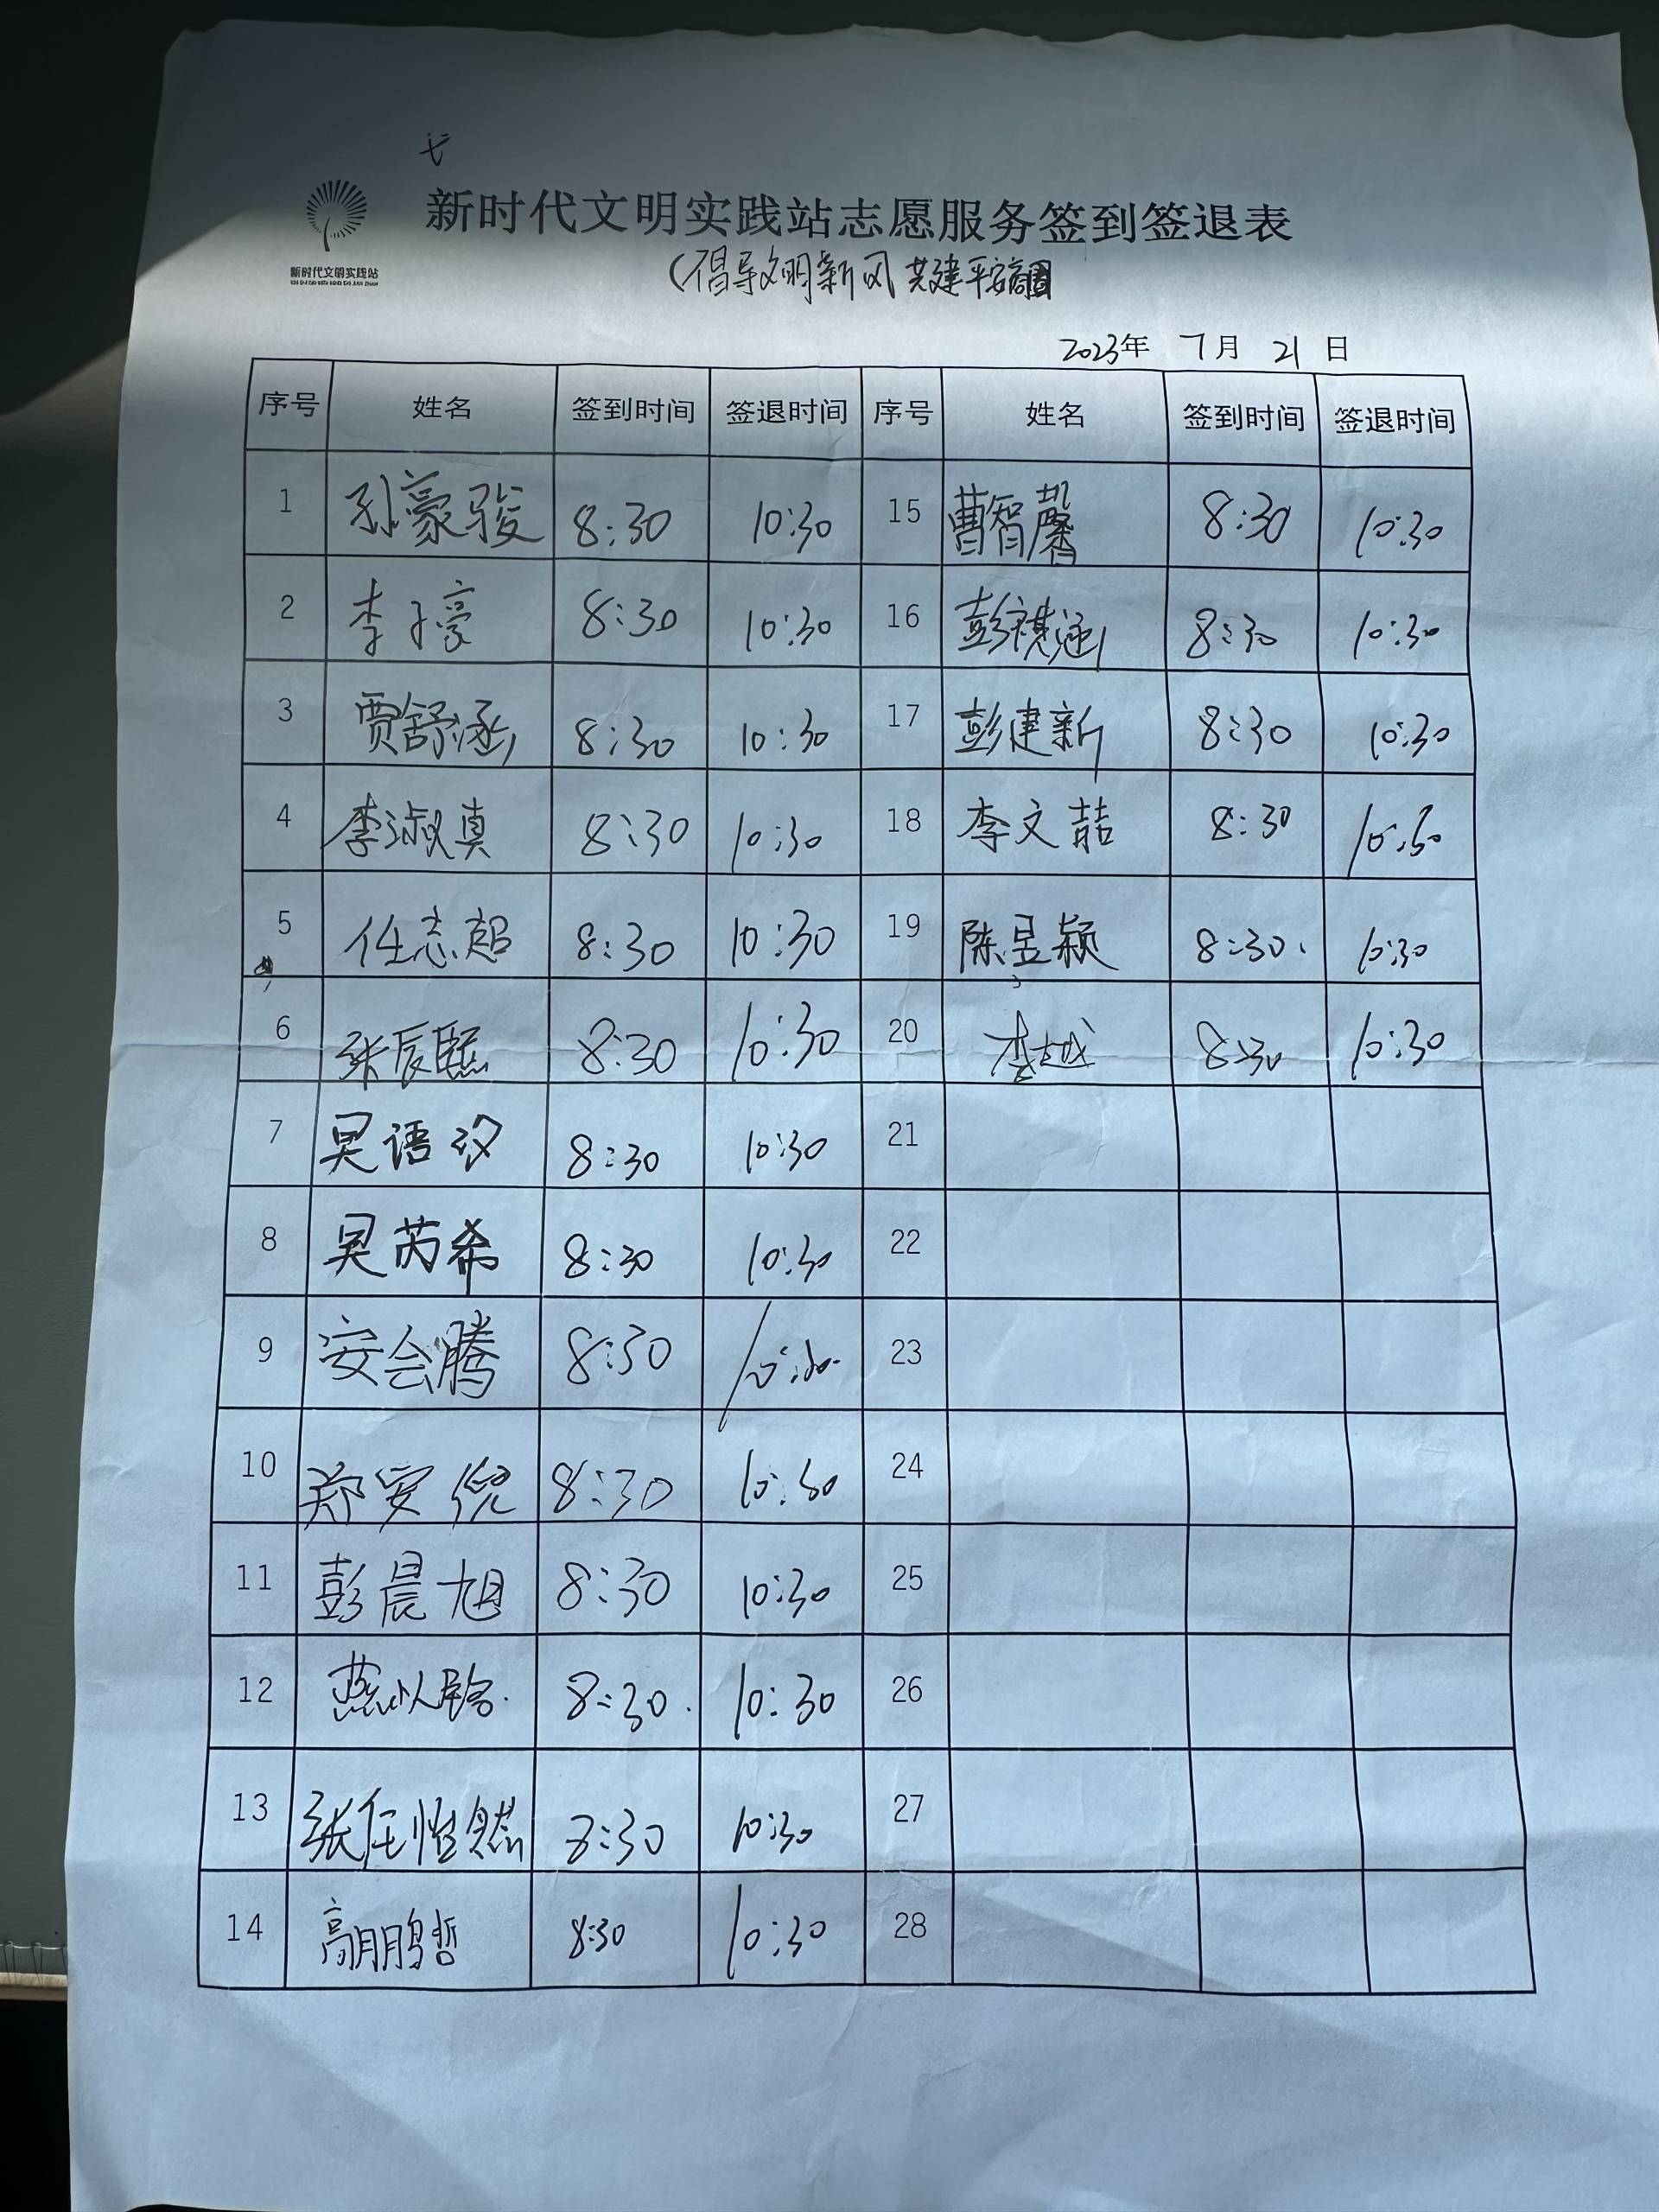 七
新时代文明实践站志愿服务签到签退表
新时代文明实践站
(倡导文明新风 共建平安高
2023年 7月 21日
序号 姓名 签到时间 签退时间 序号 姓名 签到时间 签退时间
1 孙豪骏 8:30 10:30 15 曹智馨 8:30 10:30
2 李子豪 8:30 10:30 16 彭祺涵 8:30 10:30
3 贾舒涵 8:30 10:30 17 彭建新 8:30 10:30
4 李淑真 8:30 10:30 18 李文喆 8:30 10:30
5 任志超 8:30 10:30 19 陈昱颖 8:30 10:30
6 张辰熙 8:30 10:30 20 李越 8:30 10:30
7 吴语汐 8:30 10:30 21
8 吴芮希 8:30 10:30 22
9 安会腾 8:30 10:30 23
10 郑安倪 8:30 10:30 24
11 彭晨旭 8:30 10:30 25
12 燕 8:30 10:30 26
13 张任惟然 8:30 10:30 27
14 高鹏哲 8:30 10:30 28